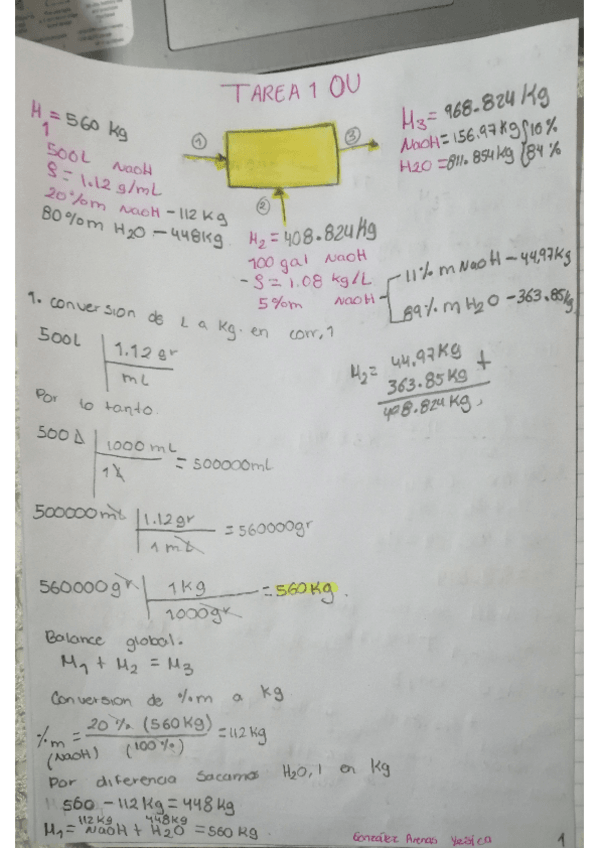 TAREA 1 OU
M1 = 560 kg
500L NaOH
ρ = 1.12 g/mL
20%m NaOH - 112 kg
80%m H2O - 448kg
①
②
③
M3 = 968.824 kg
NaOH = 156.97 kg
H2O = 811.854 kg
84 %
M2 = 408.824 kg
100 gal NaOH
- ρ = 1.08 kg/L
5%m NaOH
11% m NaOH - 44,97kg
89% m H2O - 363.85kg
1. conversion de L a kg. en corr, 1
500L | 1.12 gr
mL
Por lo tanto
M2 = 44.97 kg +
363.85 kg
408.824 kg.
500 L | 1000 mL = 500000mL
1 L
500000mL | 1.12 gr = 560000gr
1 mL
560000gr | 1 kg = 560 kg.
1000gr
Balance global.
M1 + M2 = M3
Conversion de %m a kg
%m = 20 % (560 kg) = 112 kg
(NaOH) (100 %)
Por diferencia sacamos H2O,1 en kg
560 - 112 kg = 448 kg
112 kg 448kg
M1 = NaOH + H2O = 560 kg.
González Arenas Yesica
1